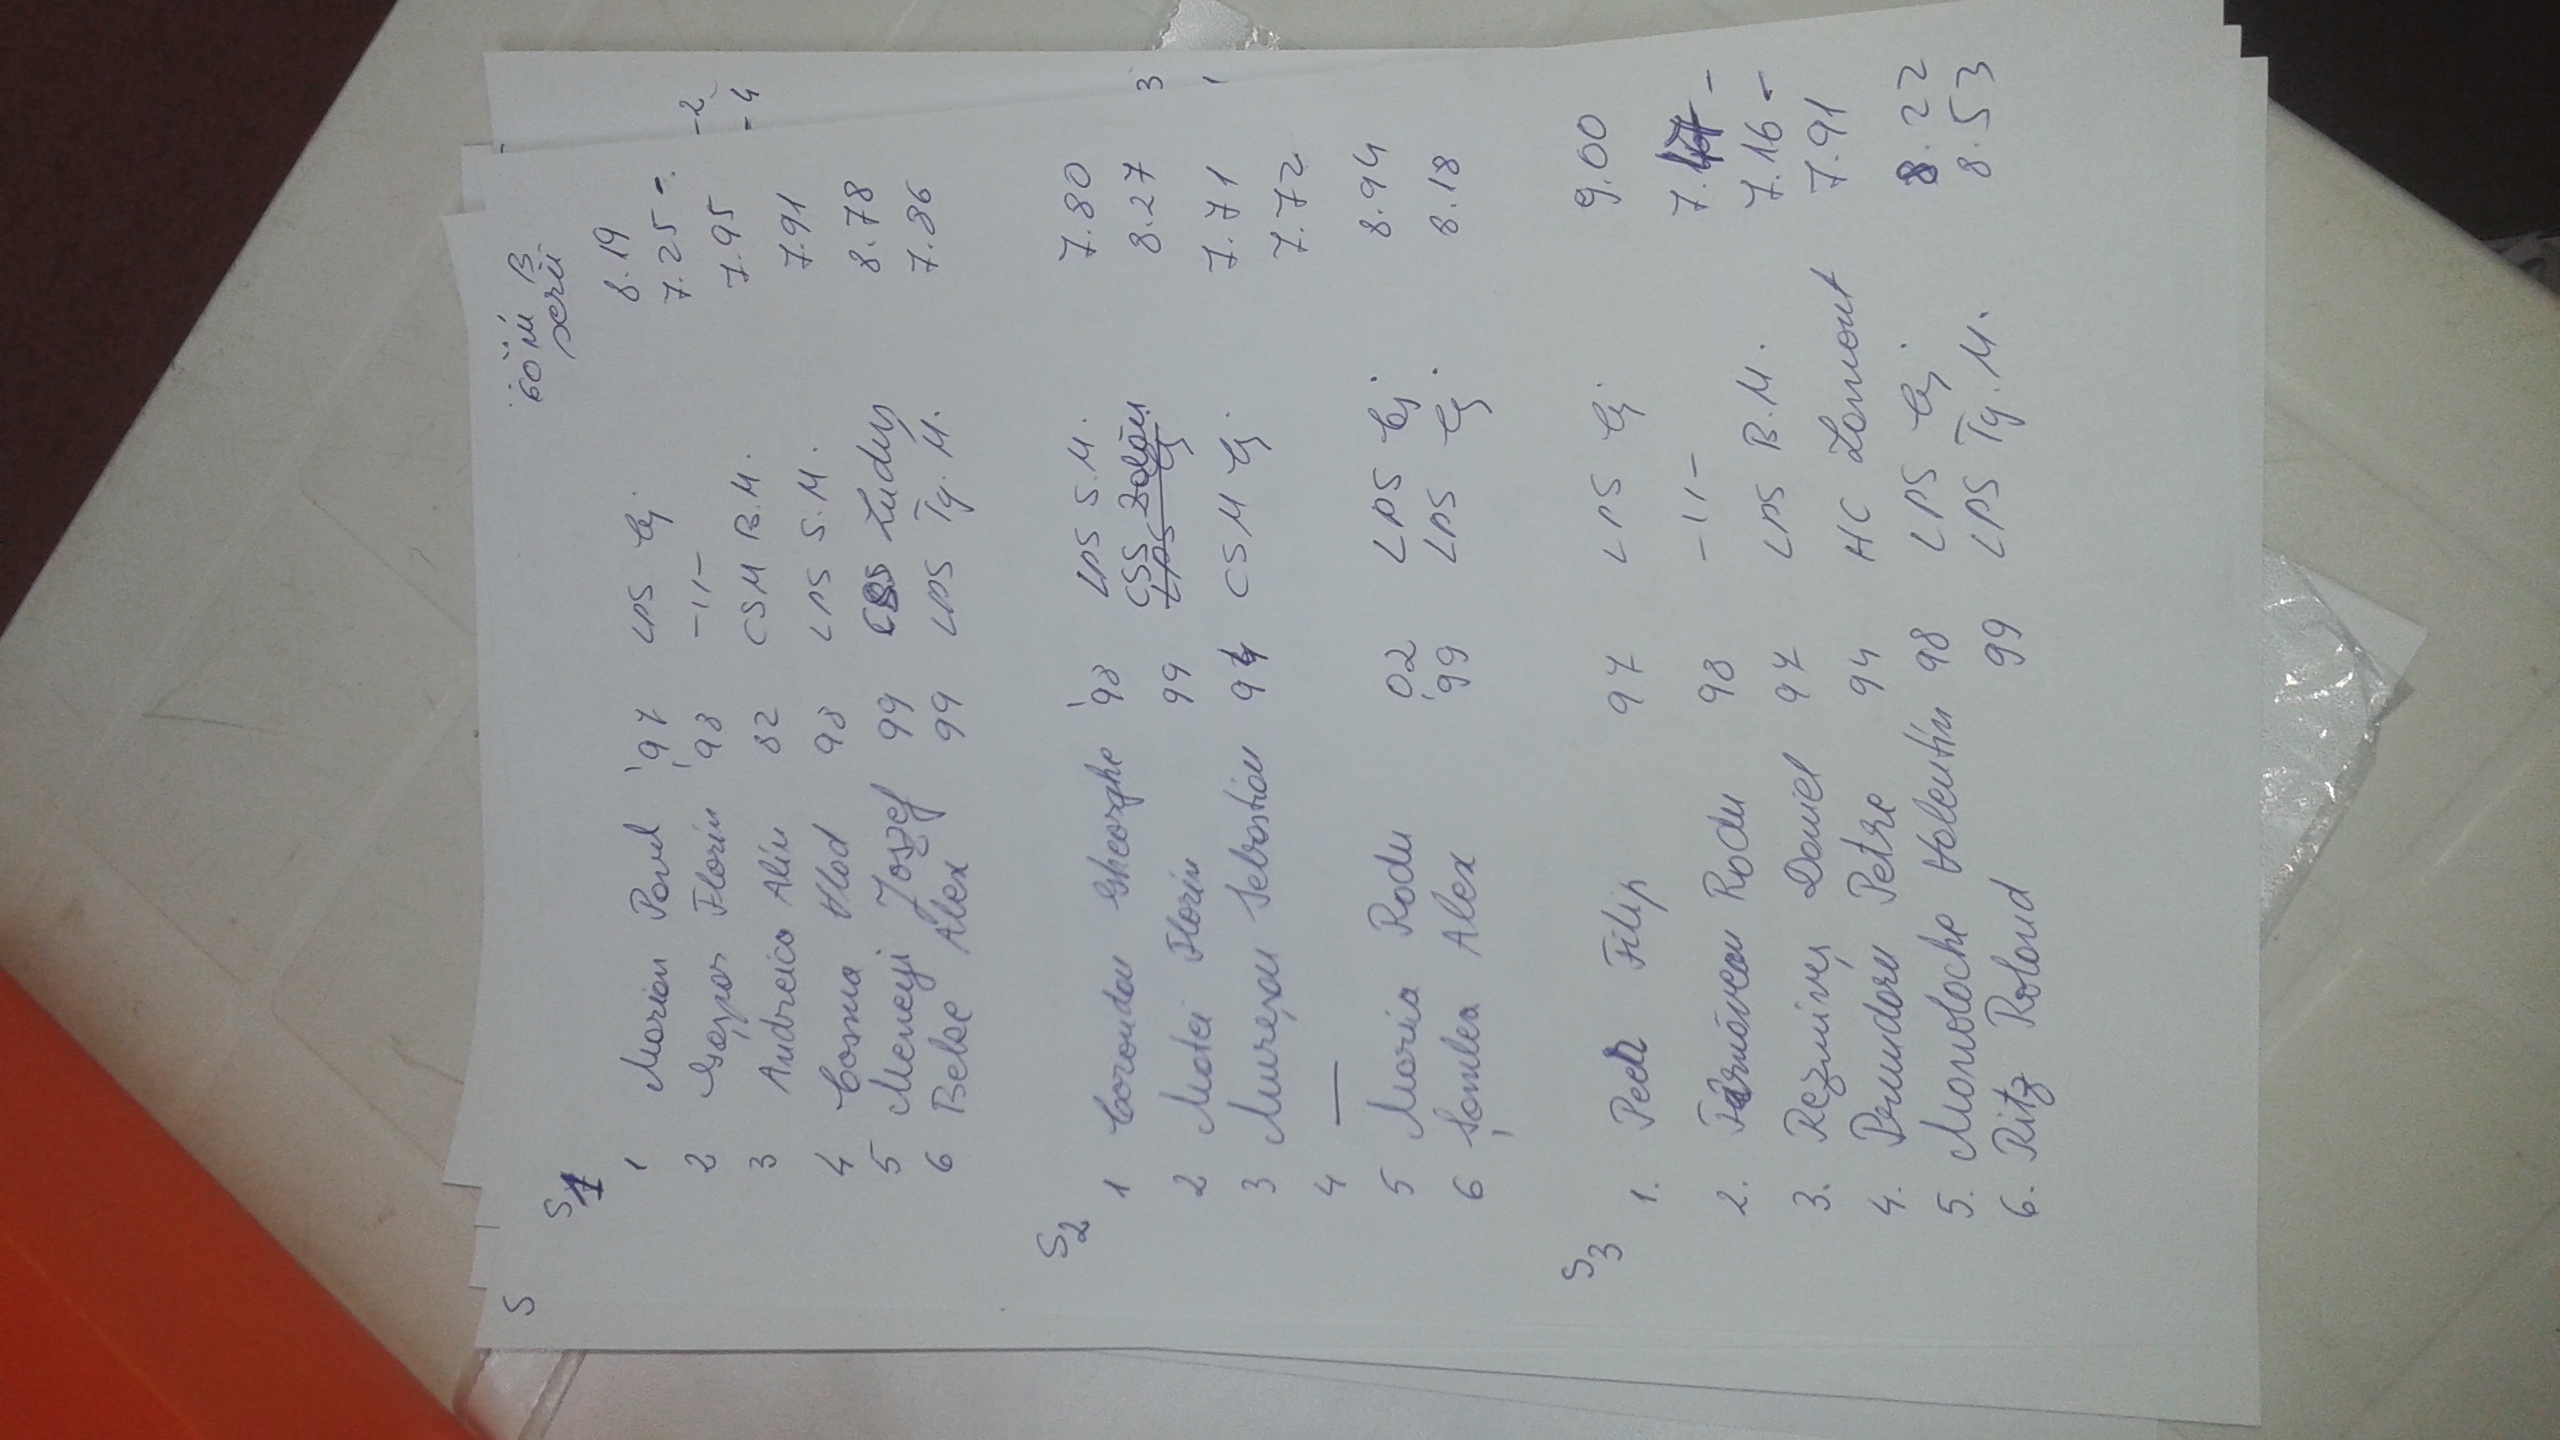 60 m B
serii
S
S1
1 Marian Pavel '97 LPS Cj. 8.19
2 Gaspar Florin '98 -11- 7.25 - -2
3 Andreico Alin 82 CSM B.M. 7.95 -4
4 Cosma Vlad 98 LPS S.M. 7.91
5 Menenyi Joszef 99 CSS Luduș 8.78
6 Bebe Alex 99 LPS Tg. M. 7.86
S2
1 Coroudan Gheorghe '98 LPS S.M. 7.80
2 Matei Florin 99 CSS Zalău 8.27 3
LPS Cj
3 Mureșan Sebastian 94 CSM Cj. 7.71 1
4 — 7.72
5 Maria Radu '02 LPS Cj. 8.94
6 Șomlea Alex '99 LPS Cj. 8.18
S3
1. Peck Filip 97 LPS Cj. 9.00
2. Târnăvean Radu 98 -11- 7. -
3. Rezmiveș Daniel 97 LPS B.M. 7.16 -
4. Prundaru Petre 94 HC Lamont 7.91
5. Manolache Valentin 98 LPS Cj. 8.22
6. Ritz Roland 99 LPS Tg. M. 8.53